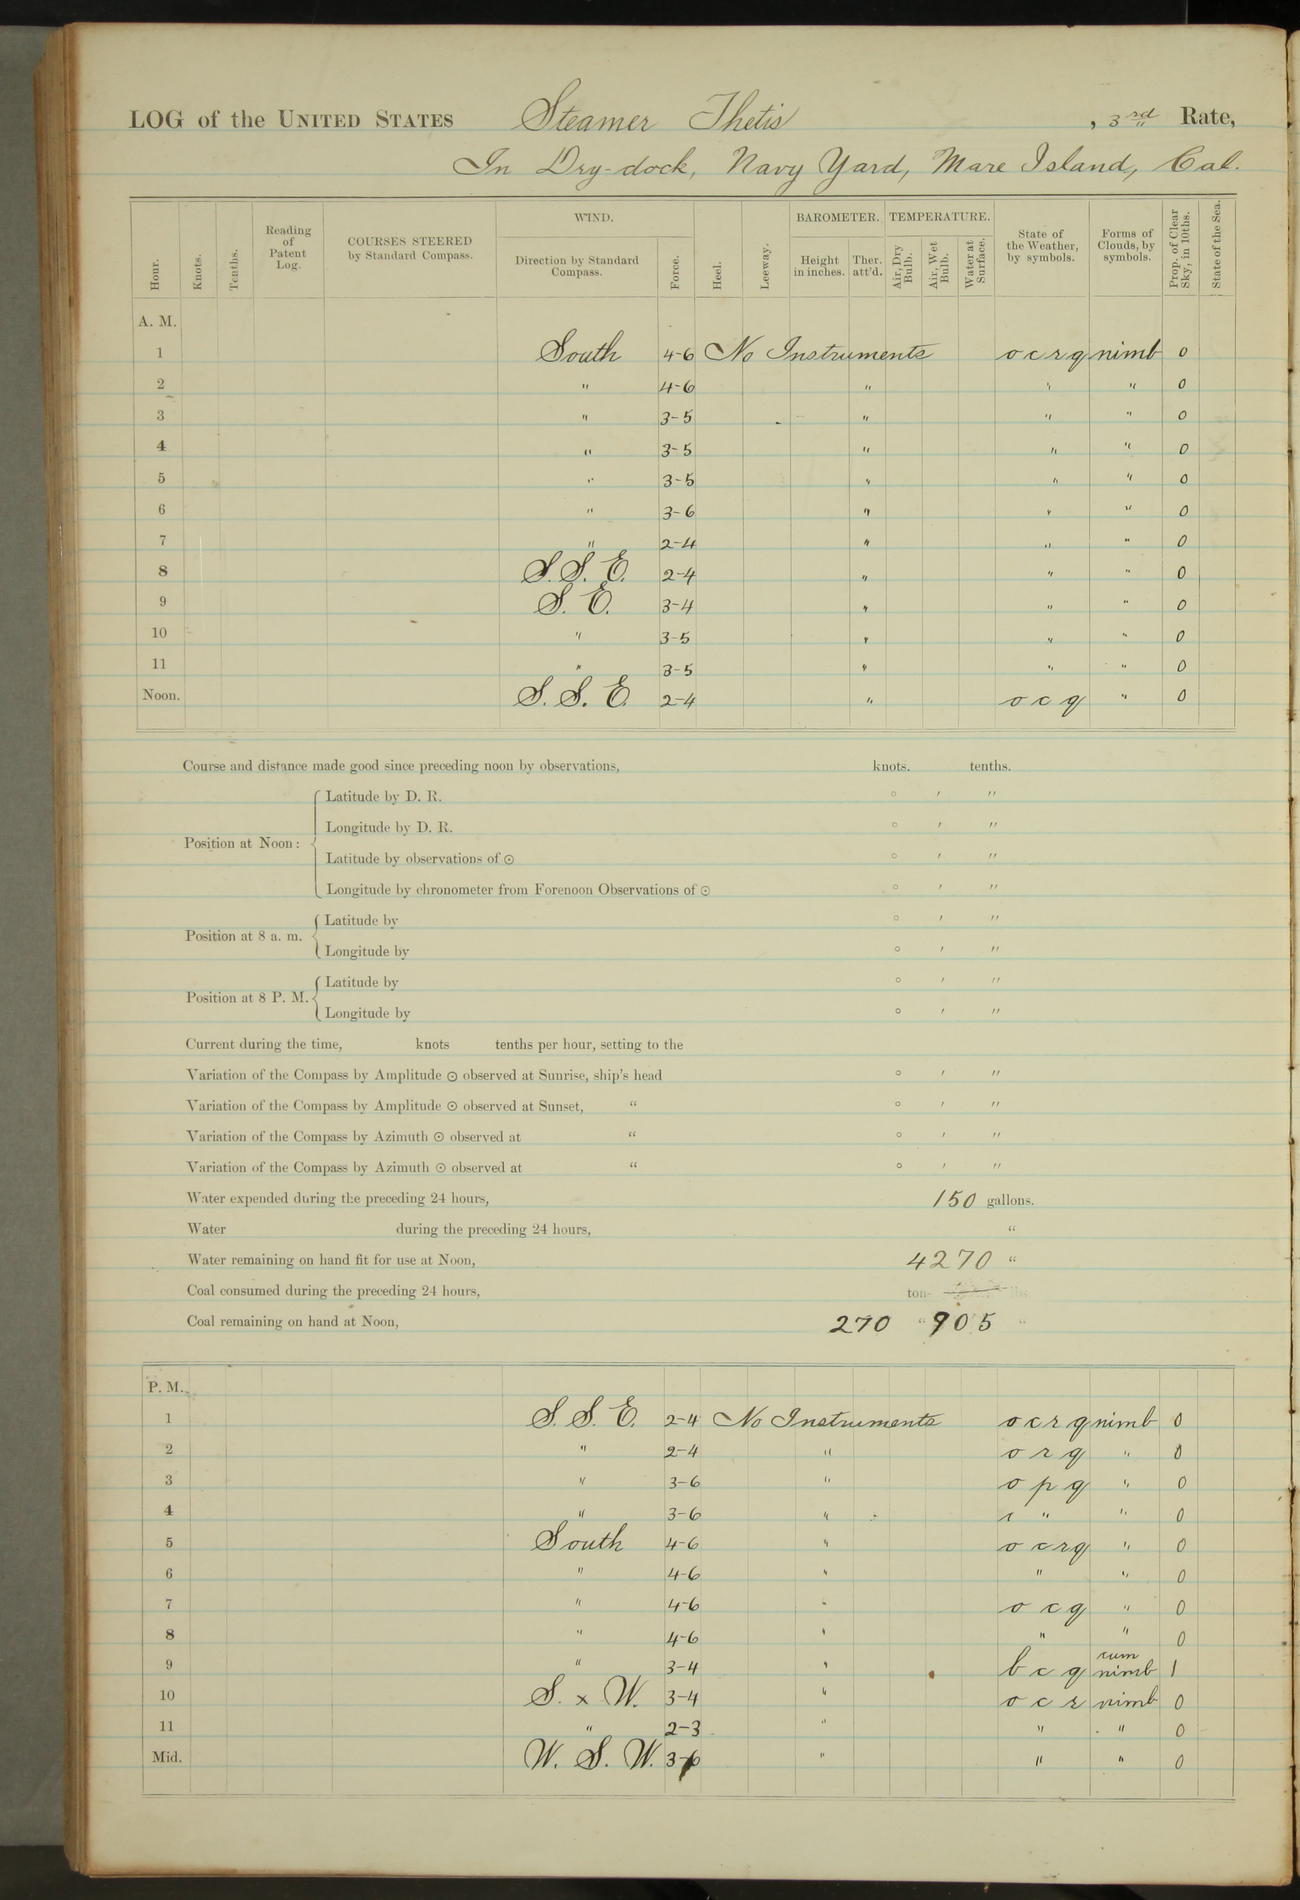 LOG of the UNITED STATES Steamer Thetis , 3rd Rate,
In Dry-dock, Navy Yard, Mare Island, Cal.
Hour. Knots. Tenths. Reading of Patent Log. COURSES STEERED by Standard Compass. WIND. Direction by Standard Compass. Force. Heel. Leeway. BAROMETER. Height in inches. Ther. att'd. TEMPERATURE. Air, Dry Bulb. Air, Wet Bulb. Water at Surface. State of the Weather, by symbols. Forms of Clouds, by symbols. Prop. of Clear Sky, in 10ths. State of the Sea.
A. M.
1 South 4-6 No Instruments o c r q nimb 0
2 " 4-6 " " " 0
3 " 3-5 " " " 0
4 " 3-5 " " " 0
5 " 3-5 " " " 0
6 " 3-6 " " " 0
7 " 2-4 " " " 0
8 S. S. E. 2-4 " " " 0
9 S. E. 3-4 " " " 0
10 " 3-5 " " " 0
11 " 3-5 " " " 0
Noon. S. S. E. 2-4 " o c q " 0
Course and distance made good since preceding noon by observations, knots. tenths.
Position at Noon:
Latitude by D. R. ° ′ ″
Longitude by D. R. ° ′ ″
Latitude by observations of ⊙ ° ′ ″
Longitude by chronometer from Forenoon Observations of ⊙ ° ′ ″
Position at 8 a. m.
Latitude by ° ′ ″
Longitude by ° ′ ″
Position at 8 P. M.
Latitude by ° ′ ″
Longitude by ° ′ ″
Current during the time, knots tenths per hour, setting to the
Variation of the Compass by Amplitude ⊙ observed at Sunrise, ship's head ° ′ ″
Variation of the Compass by Amplitude ⊙ observed at Sunset, " ° ′ ″
Variation of the Compass by Azimuth ⊙ observed at " ° ′ ″
Variation of the Compass by Azimuth ⊙ observed at " ° ′ ″
Water expended during the preceding 24 hours, 150 gallons.
Water during the preceding 24 hours, "
Water remaining on hand fit for use at Noon, 4270 "
Coal consumed during the preceding 24 hours, ton- lbs.
Coal remaining on hand at Noon, 270 " 905 "
P. M.
1 S. S. E. 2-4 No Instruments o c r q nimb 0
2 " 2-4 " o r q " 0
3 " 3-6 " o p q " 0
4 " 3-6 " " " 0
5 South 4-6 " o c r q " 0
6 " 4-6 " " " 0
7 " 4-6 " o c q " 0
8 " 4-6 " " " 0
9 " 3-4 " b c q cum nimb 1
10 S. x W. 3-4 " o c r nimb 0
11 " 2-3 " " " 0
Mid. W. S. W. 3-6 " " " 0